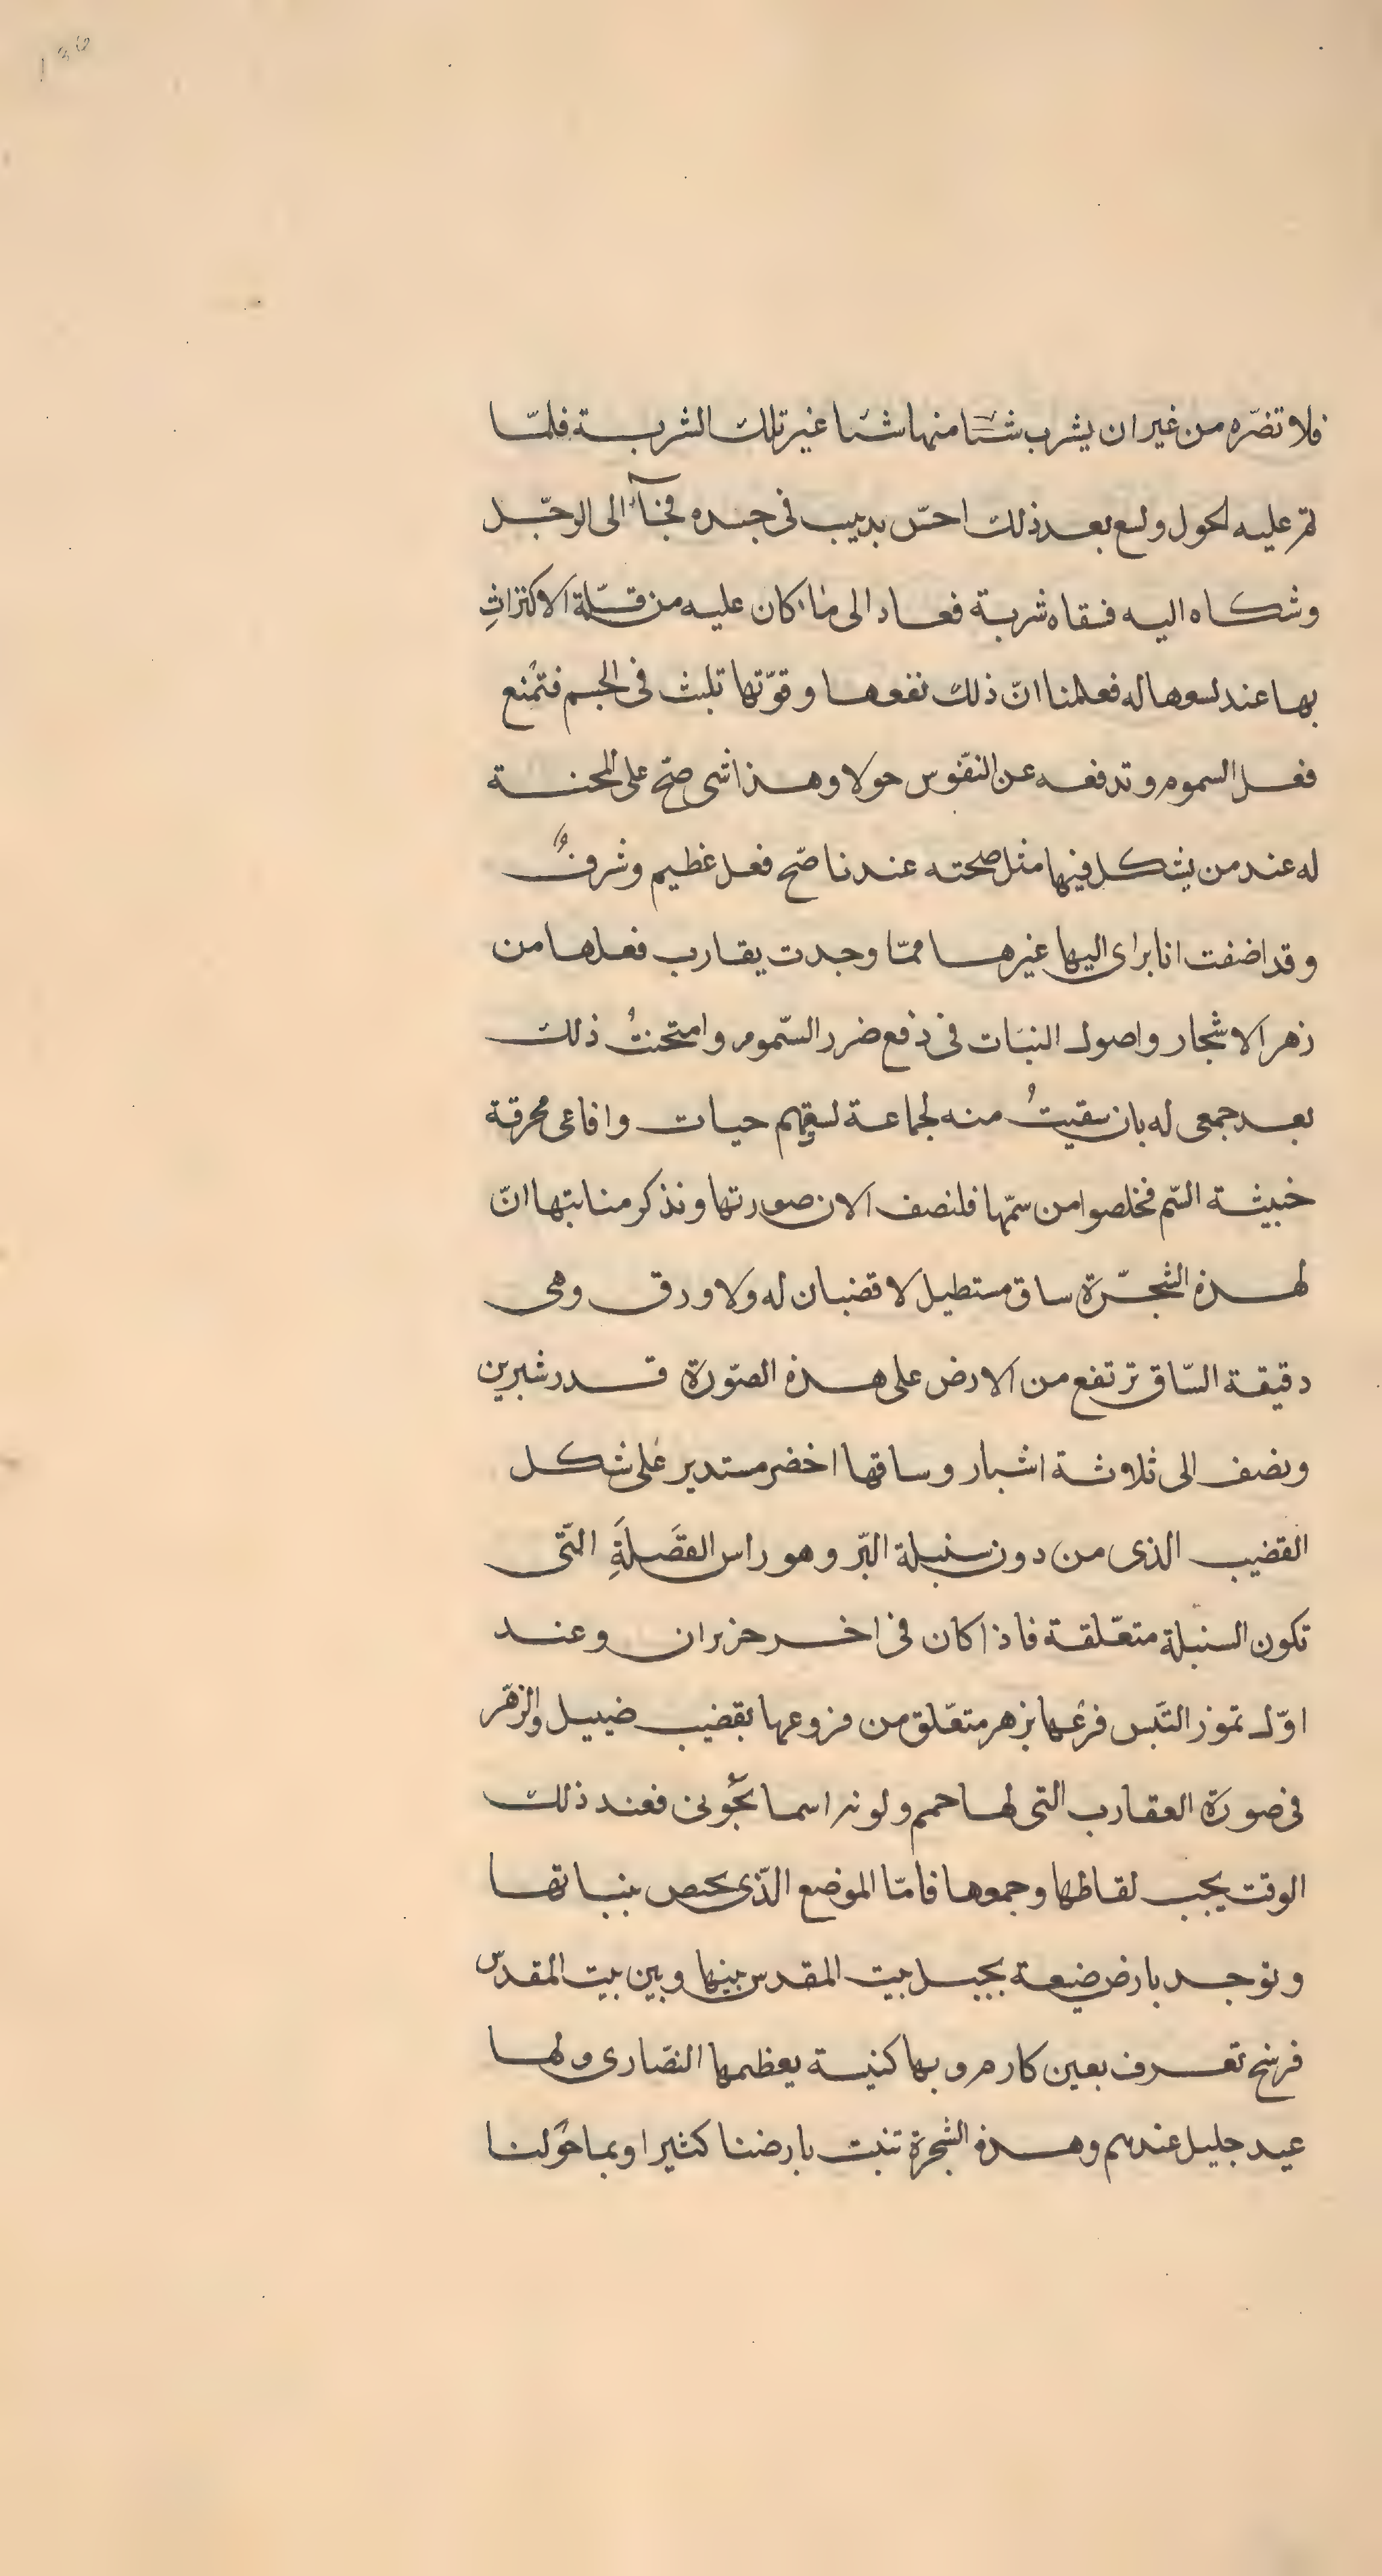 فلا تضرّه من غير ان يشرب شيئا منها شيئا غير تلك الشربة فلمّا
تمّ عليه الحول ولسع بعد ذلك احسّ بدبيب فى جسده فجآء الى الرجل
وشكاه اليه فسقاه شربة فعاد الى ما كان عليه من قلّة الاكتراثِ
بها عند لسعها له فعلمنا انّ ذلك نفعها وقوّتها تلبث فى الجسم فتمنع
فعل السموم وتدفعه عن النفوس حولا وهذا شى صحّ على المحنة
له عند من يشكل فيها مثل صحته عندنا صحّ فعل عظيم وشرفٌ
وقد اضفت انا براى اليها غيرها ممّا وجدت يقارب فعلها من
زهر الاشجار واصول النبات فى دفع ضرر السّموم وامتحنتُ ذلك
بعد جمعى له بان سقيتُ منه لجماعة لسعتهم حيات وافاعى محرقة
خبيثة السّم فخلصوا من سمّها فلنصف الان صورتها ونذكر منابتها انّ
لهذه الشجرّة ساق مستطيل لا قضبان له ولا ورق وهى
دقيقة السّاق ترتفع من الارض على هذه الصّورة قدر شبرين
ونصف الى ثلاوثة اشبار وساقها اخضر مستدير على شكل
القضيب الذى من دون سنبلة البّر وهو راس القصَلَةِ الّتى
تكون السنبلة متعّلقة فاذا كان فى اخر حزيران وعند
اوّل تموز التبّس فرعها بزهر متعّلق من فروعها بقضيب ضييل والزهّر
فى صورة العقارب التى لها حمم ولونه اسمانجُونى فعند ذلك
الوقت يجب لقاطها وجمعها فامّا الموضع الّذى يختص بنباتها
وتوجد بارض ضيعة بجبل بيت المقدس بينها وبين بيت المقدسّ
فرسخ تعرف بعين كارم وبها كنيسة يعظمها النصّارى ولها
عيد جليل عندهم وهذه الشجرة تنبت بارضنا كثيرا وبما حولنا